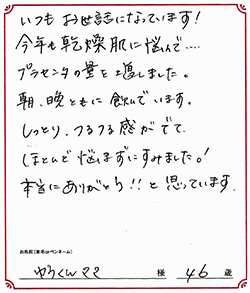 いつもお世話になっています!
今年も乾燥肌に悩んで....
プラセンタの量を増しました。
朝、晩ともに飲んでいます。
しっとり、つるつる感がでて、
ほとんど悩まずにすみました。!
本当にありがとう!!と思っています。
お名前(本名orペンネーム)
ゆうくんママ 様 46 歳